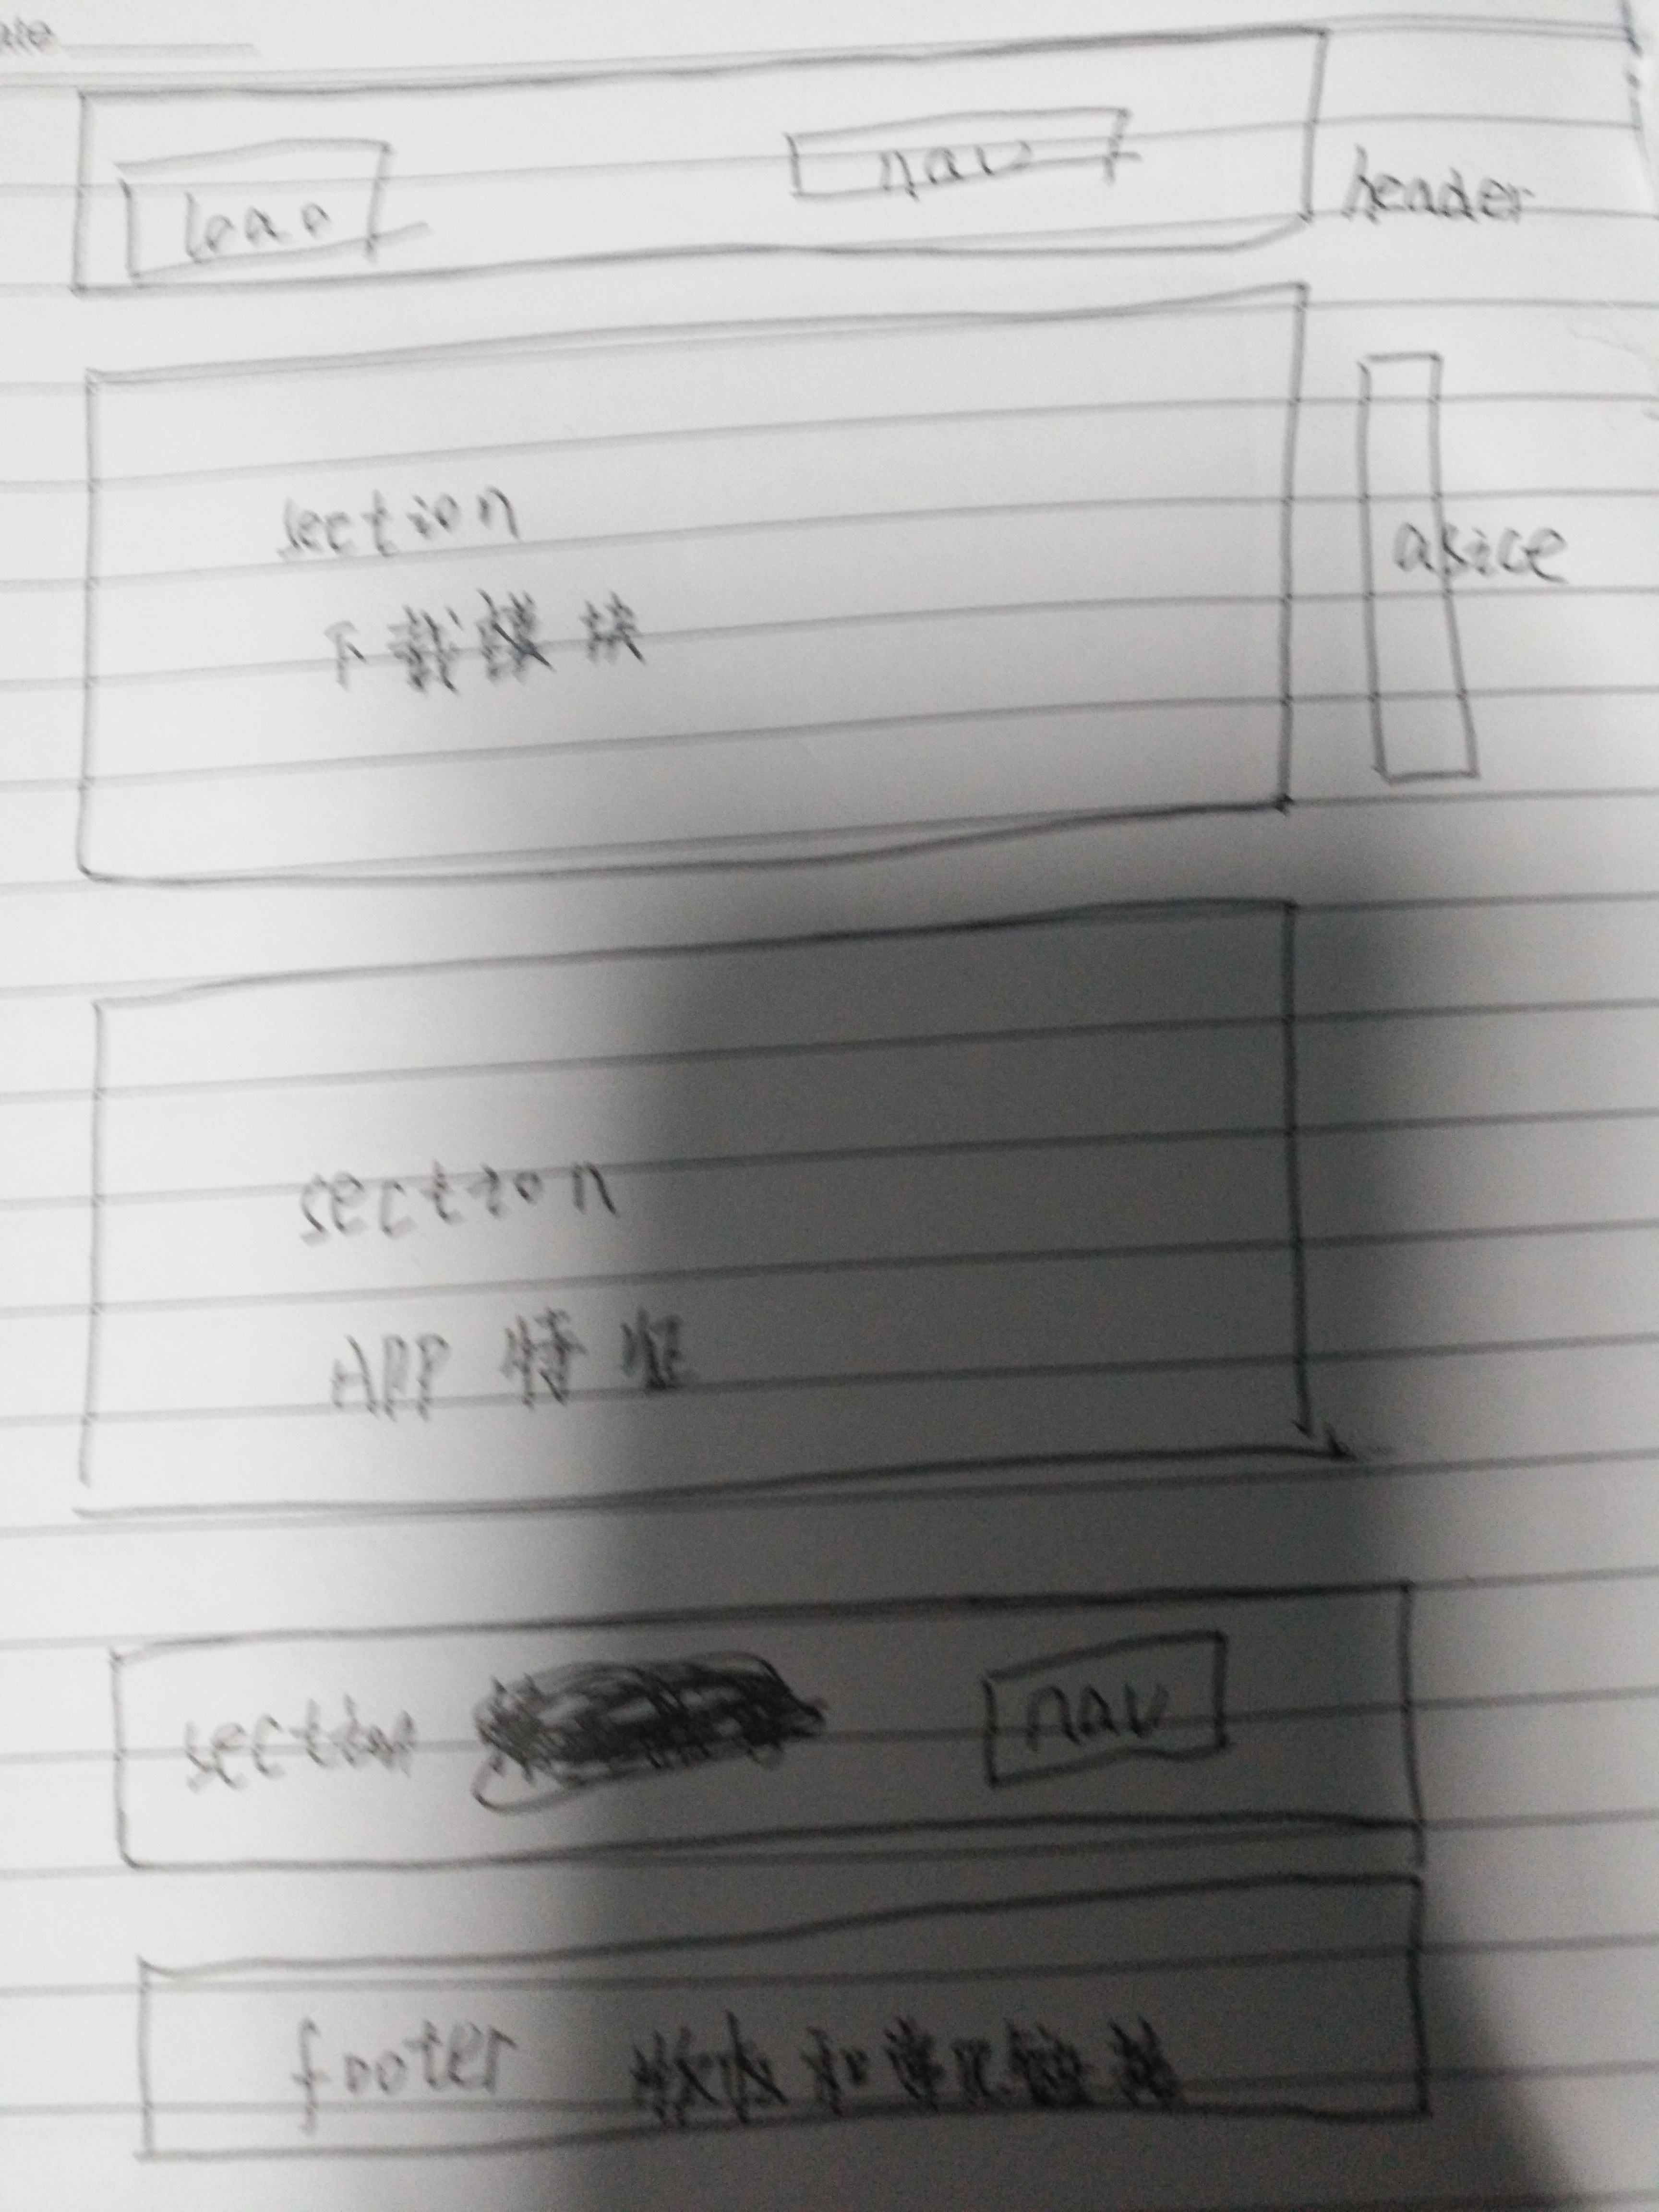 nav
header
section
下载模块
asice
section
APP 特征
section
nav
footer